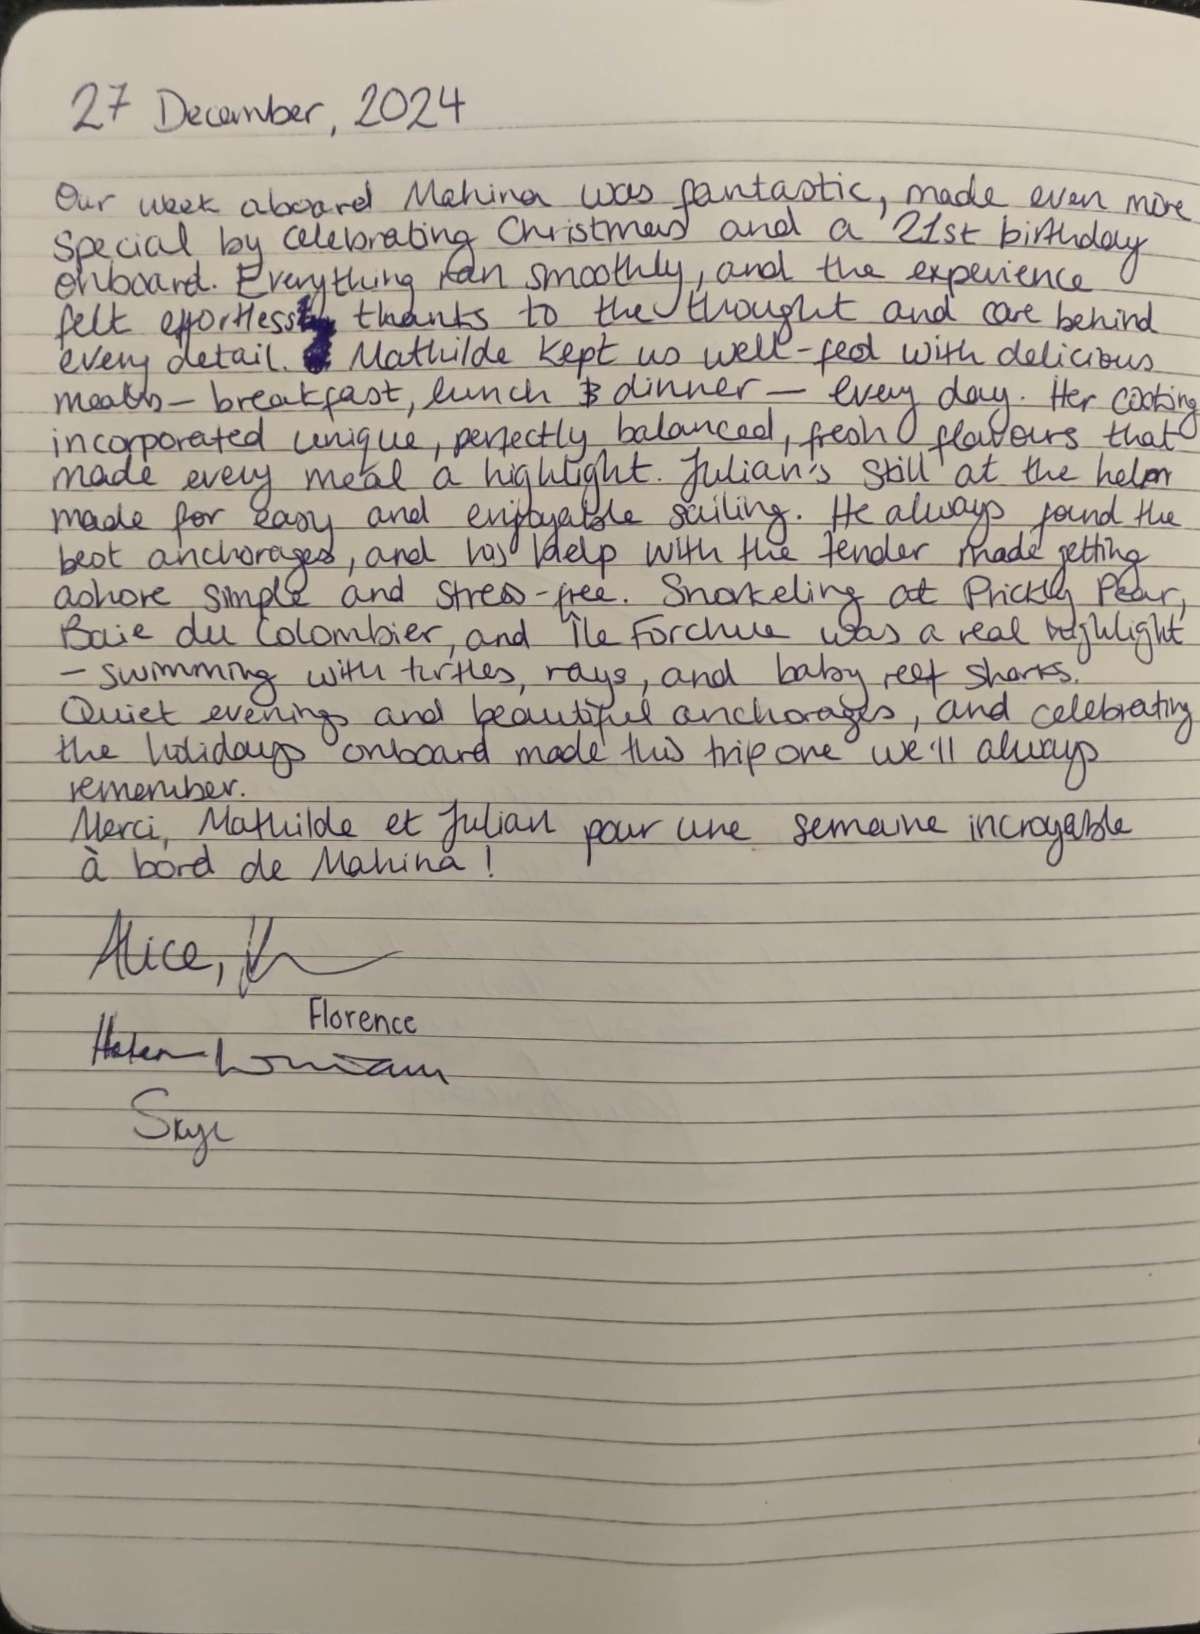 27 December, 2024
Our week aboard Mahina was fantastic, made even more
special by celebrating Christmas and a 21st birthday
onboard. Everything ran smoothly, and the experience
felt effortless thanks to the thought and care behind
every detail. Mathilde kept us well-fed with delicious
meals – breakfast, lunch & dinner – every day. Her cooking
incorporated unique, perfectly balanced, fresh flavours that
made every meal a highlight. Julian's still at the helm
made for easy and enjoyable sailing. He always found the
best anchorages, and his help with the tender made getting
ashore simple and stress-free. Snorkeling at Prickly Pear,
Baie du Colombier, and Île Forchue was a real highlight
– swimming with turtles, rays, and baby reef sharks.
Quiet evenings and beautiful anchorages, and celebrating
the holidays onboard made this trip one we'll always
remember.
Merci, Mathilde et Julian pour une semaine incroyable
à bord de Mahina !
Alice,
Florence
Helen
Skye